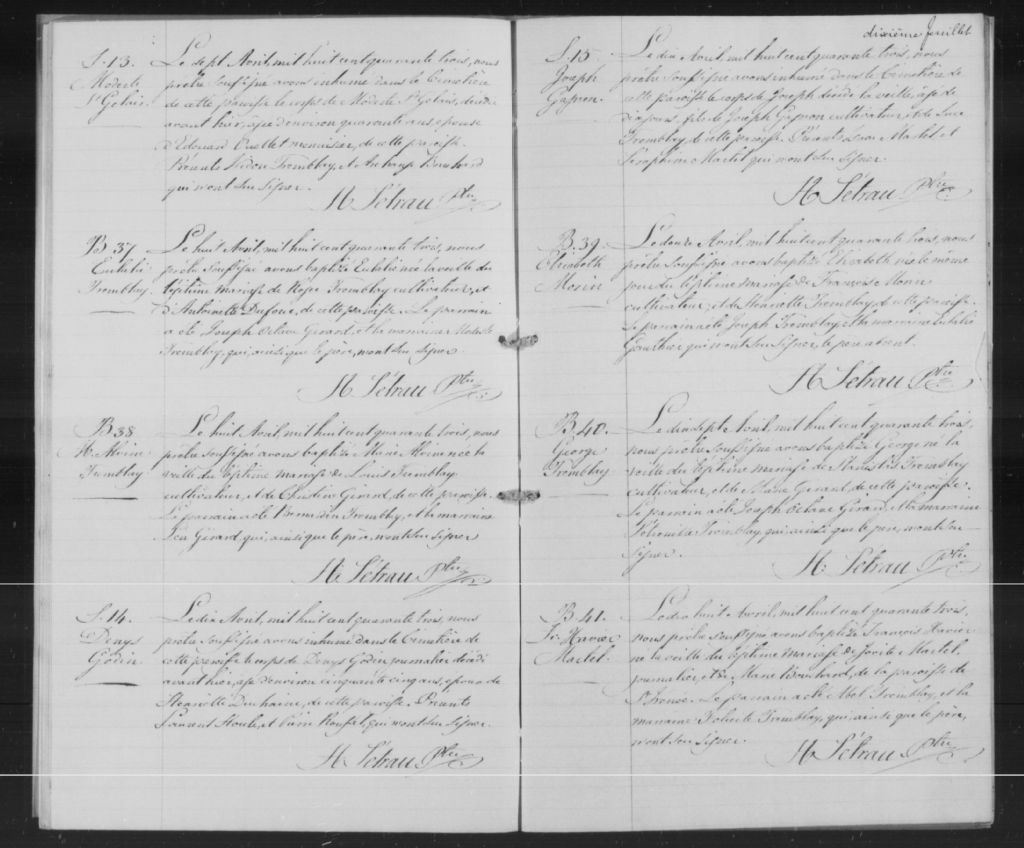 S. 13.
Modeste
St Gelais.
Le sept Avril, mil huit cent quarante trois, nous
prêtre soussigné avons inhumé dans le Cimetière
de cette paroisse le corps de Modeste St Gelais, décédée
avant hier, âgée d'environ quarante ans, épouse
d'Edouard Ouellet menuisier, de cette paroisse.
Présents Tremblay, et Bouchard
qui n'ont su signer.
H. Létrau Ptre
B 37
Tremblay
Le huit Avril, mil huit cent quarante trois, nous
prêtre soussigné avons baptisé née la veille du
légitime mariage de Tremblay cultivateur, et
d'Antoinette Dufour, de cette paroisse. Le parrain
a été Joseph Octave Gérard, et la marraine
Tremblay, qui, ainsi que le père, n'ont su signer.
H. Létrau Ptre
B 38
Tremblay
Le huit Avril, mil huit cent quarante trois, nous
prêtre soussigné avons baptisé Marie née la
veille du légitime mariage de Louis Tremblay
cultivateur, et de Christine Gérard, de cette paroisse.
Le parrain a été Tremblay, et la marraine
Gérard, qui, ainsi que le père, n'ont su signer
H. Létrau Ptre
S. 14.
Denys
Godin
Le dix Avril, mil huit cent quarante trois, nous
prêtre soussigné avons inhumé dans le Cimetière de
cette paroisse le corps de Denys Godin journalier décédé
avant hier, âgé d'environ cinquante cinq ans, époux de
Henriette Duchaine, de cette paroisse. Présents
Laurent et qui n'ont su signer.
H. Létrau Ptre
dixième feuillet
S. 15.
Joseph
Gagnon.
Le dix Avril, mil huit cent quarante trois, nous
prêtre soussigné avons inhumé dans le Cimetière de
cette paroisse le corps de Joseph décédé la veille, âgé de
dix jours, fils de Joseph Gagnon cultivateur, et de Luce
Tremblay, de cette paroisse. Présents Martel et
Séraphin Martel qui n'ont su signer.
H. Létrau Ptre
B. 39.
Elizabeth
Morin
Le douze Avril, mil huit cent quarante trois, nous
prêtre soussigné avons baptisé Elizabeth née le même
jour du légitime mariage de François Morin
cultivateur, et de Henriette Tremblay, de cette paroisse.
Le parrain a été Joseph Tremblay, et la marraine
Gauthier qui n'ont su signer, le père absent.
H. Létrau Ptre
B. 40.
George
Tremblay
Le dix sept Avril, mil huit cent quarante trois,
nous prêtre soussigné avons baptisé George né la
veille du légitime mariage de Tremblay
cultivateur, et de Marie Gérard, de cette paroisse.
Le parrain a été Joseph Octave Gérard, et la marraine
Pétronille Tremblay, qui, ainsi que le père, n'ont su
signer.
H. Létrau Ptre
B. 41.
Fr. Xavier
Martel.
Le dix huit Avril, mil huit cent quarante trois,
nous prêtre soussigné avons baptisé François Xavier
né la veille du légitime mariage de Martel
journalier, et de Marie Bouchard, de la paroisse de
St Irénée. Le parrain a été Abel Tremblay, et la
marraine Tremblay, qui, ainsi que le père,
n'ont su signer.
H. Létrau Ptre